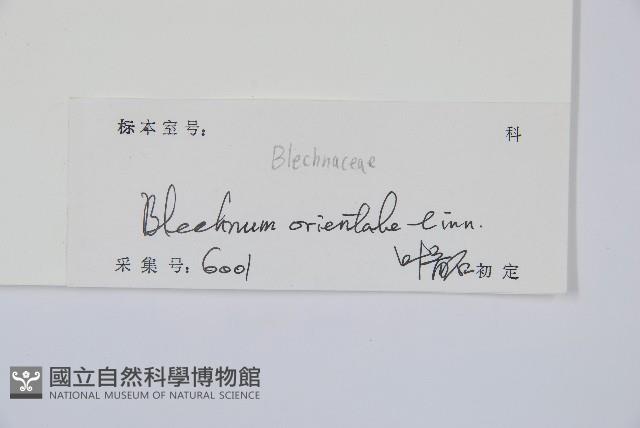 标本室号: 科
Blechnaceae
Blechnum orientale Linn.
采集号: 6001 初定
國立自然科學博物館
NATIONAL MUSEUM OF NATURAL SCIENCE